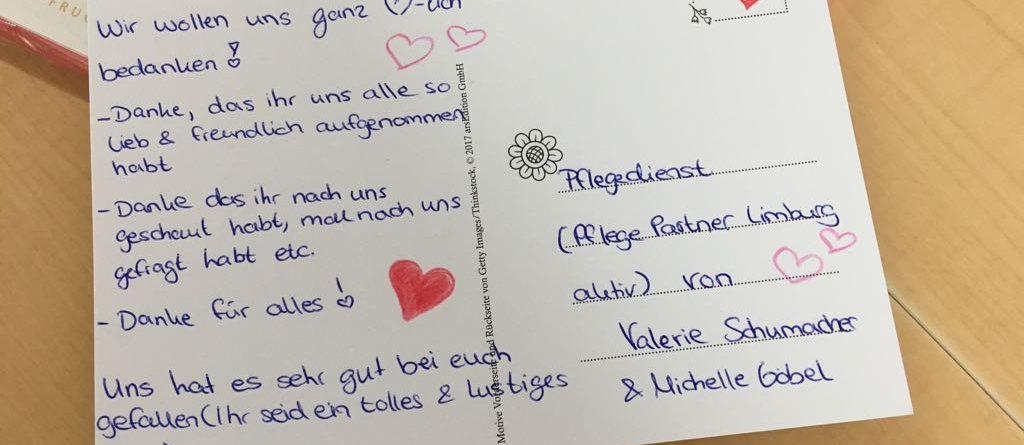 FRUC
Wir wollen uns ganz ♡-lich
bedanken!
-Danke, das ihr uns alle so
lieb & freundlich aufgenommen
habt
-Danke das ihr nach uns
geschaut habt, mal nach uns
gefragt habt etc.
- Danke für alles!
Uns hat es sehr gut bei euch
gefallen (Ihr seid ein tolles & lustiges
Motive Vorderseite und Rückseite von Getty Images/Thinkstock, © 2017 arsEdition GmbH
Pflegedienst
(Pflege Partner Limburg
aktiv) von
Valerie Schumacher
& Michelle Göbel